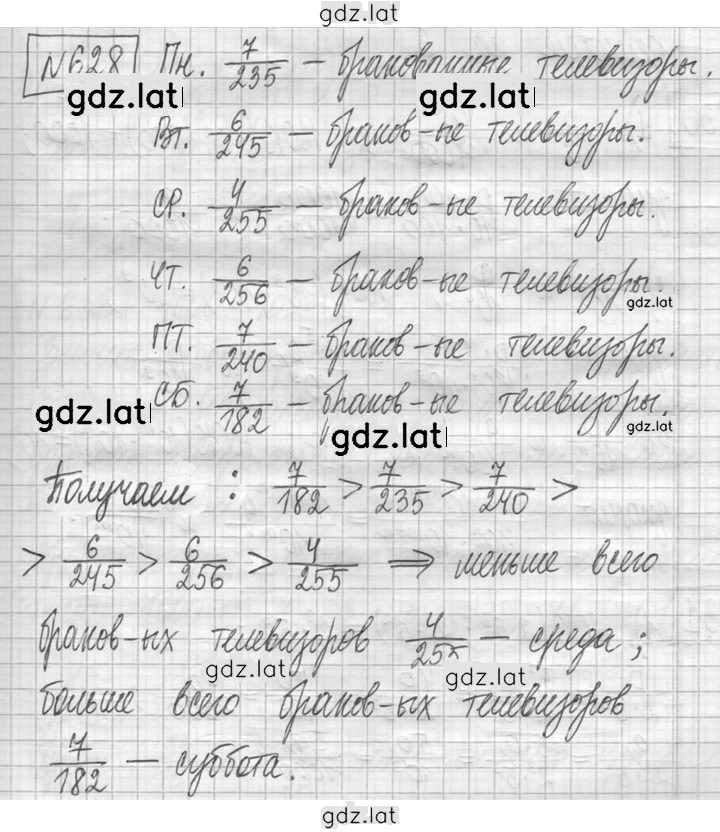 gdz.lat
№628 Пн. 7/235 — бракованные телевизоры.
gdz.lat gdz.lat
Вт. 6/245 — браков-ые телевизоры.
ср. 4/255 — браков-ые телевизоры.
чт. 6/256 — браков-ые телевизоры.
gdz.lat
ПТ. 7/240 — браков-ые телевизоры.
СБ. 7/182 — браков-ые телевизоры.
gdz.lat gdz.lat
Получаем : 7/182 > 7/235 > 7/240 >
> 6/245 > 6/256 > 4/255 ⇒ меньше всего
браков-ых телевизоров 4/255 — среда;
gdz.lat gdz.lat
больше всего браков-ых телевизоров
7/182 — суббота.
gdz.lat